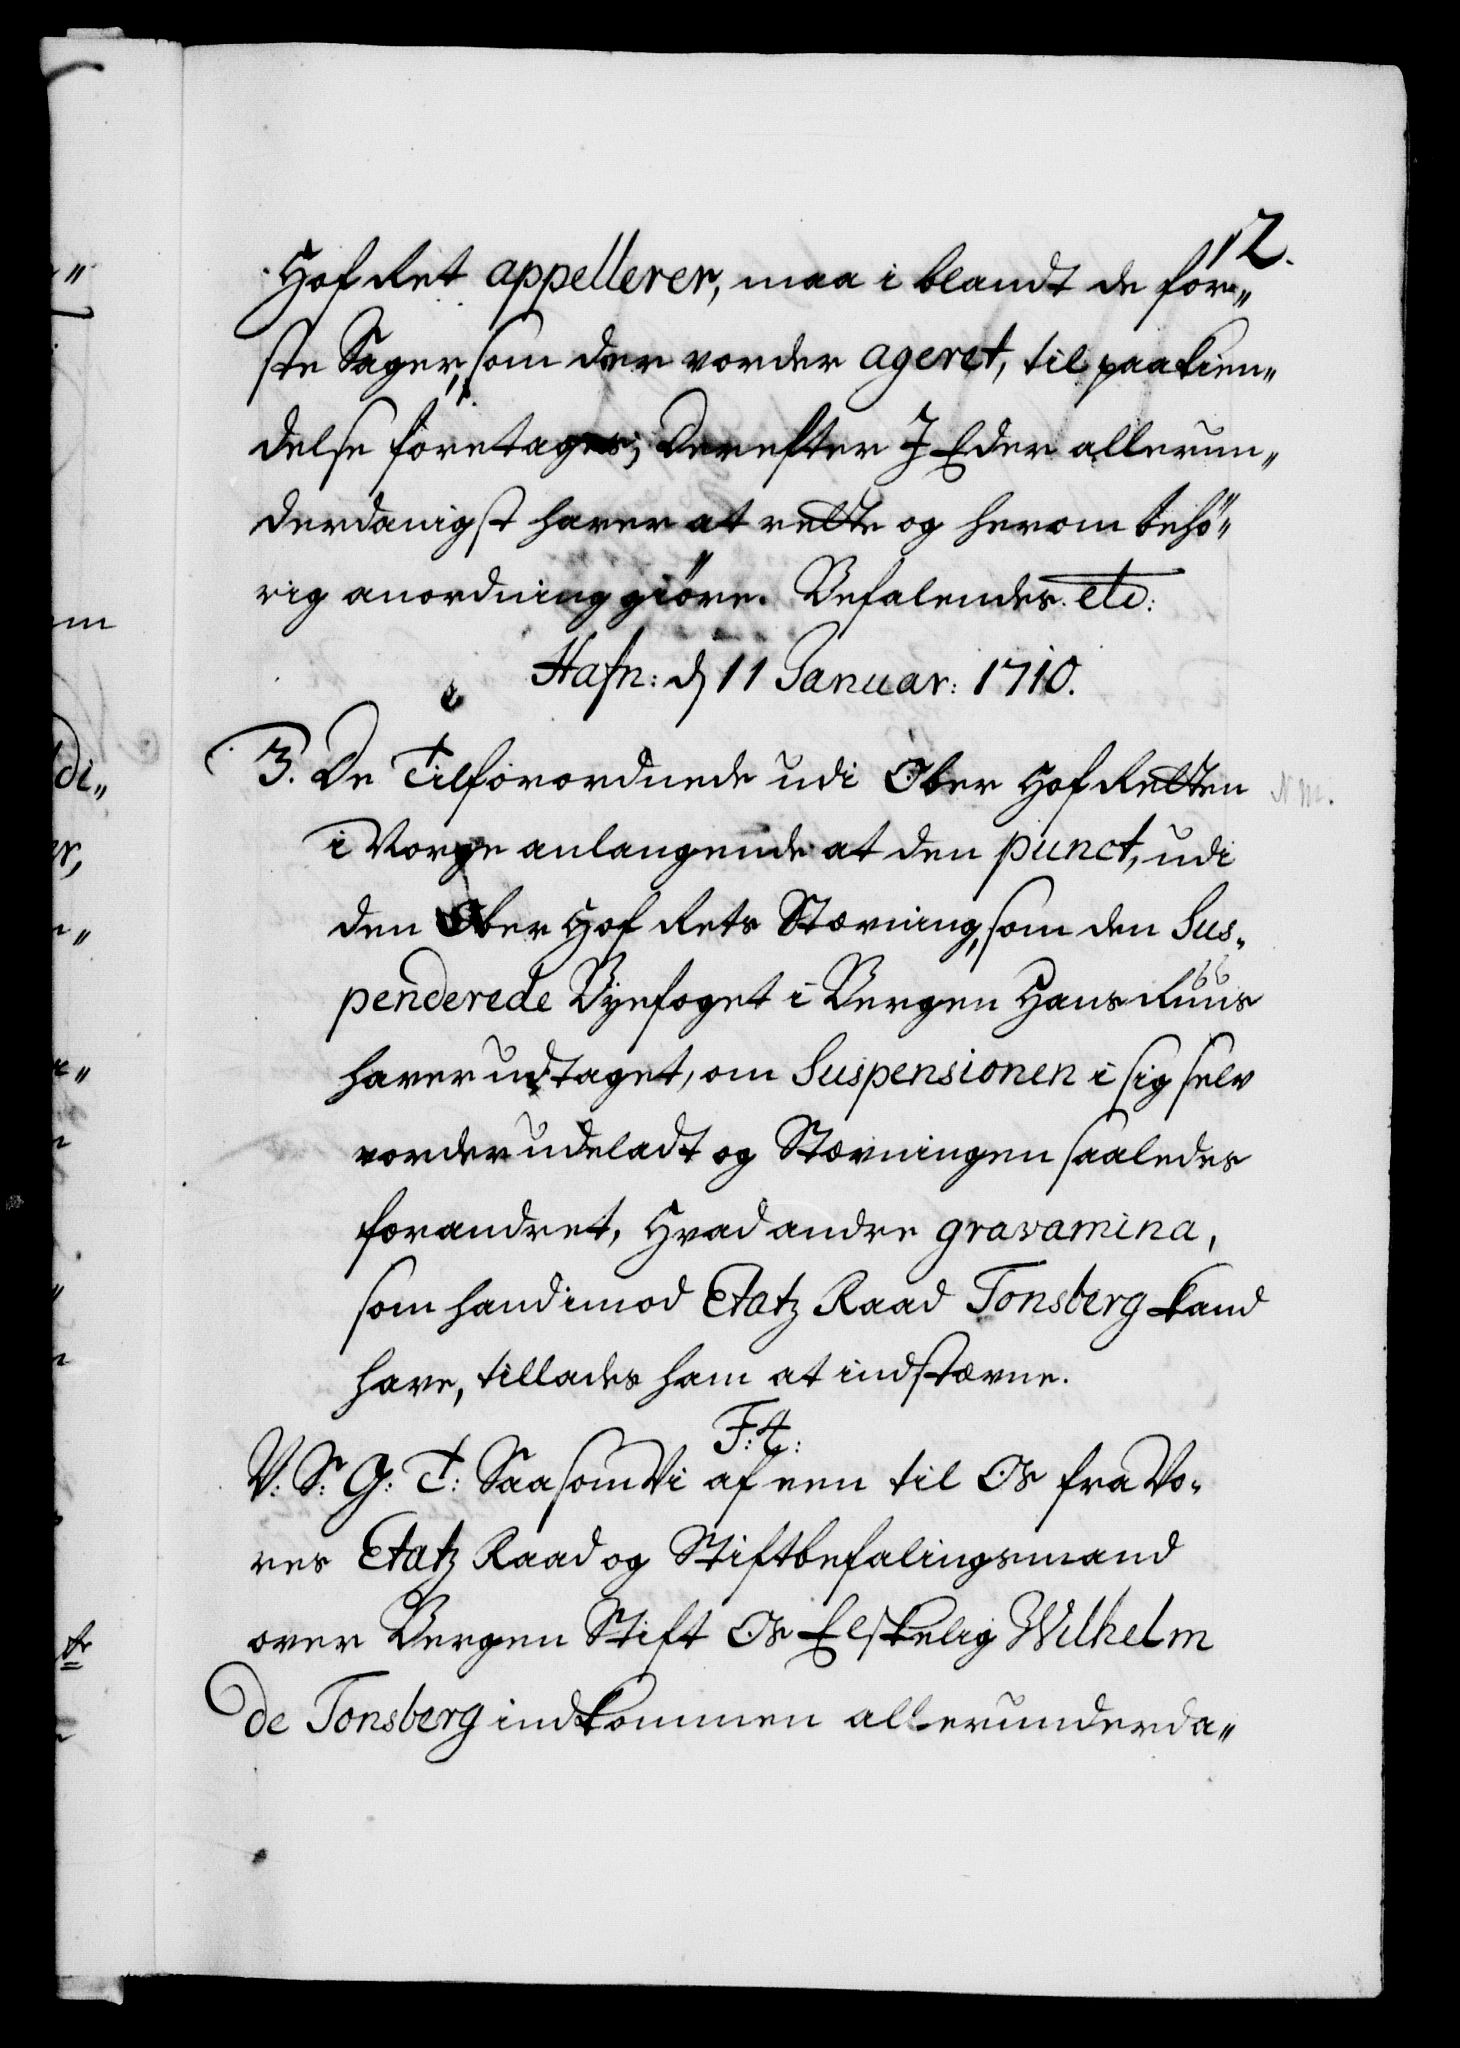 2.
Hof Ret appellerer, maa i blandt de før„
ste Sager, som der vorder ageret, til paakien„
delse foretages; Derefter I Eder allerun„
derdanigst haver at rette og herom behö„
rig anordning giöre. Befalendes etc:
Hafn: d 11 Januar: 1710.
3. De Tilforordnede udi Ober Hof Retten
i Norge anlangende at den punct, udi
den Ober Hof Rets Stævning, som den Sus„
penderede Byefoget i Bergen Hans Ruus
haver udtaget, om Suspensionen i sig selv
vorder udeladt og Stævningen saaledes
forandret, Hvad andre gravamina,
som hand imod Etatz Raad Tonsberg kand
have, tillades ham at indstævne.
F: 4:
V: S: G: T: Saasom Vi af een til Os fra Vo„
res Etatz Raad og Stiftbefalingsmand
over Bergen Stift Os Elskelig Wilhelm
de Tonsberg indkommen allerunderda„